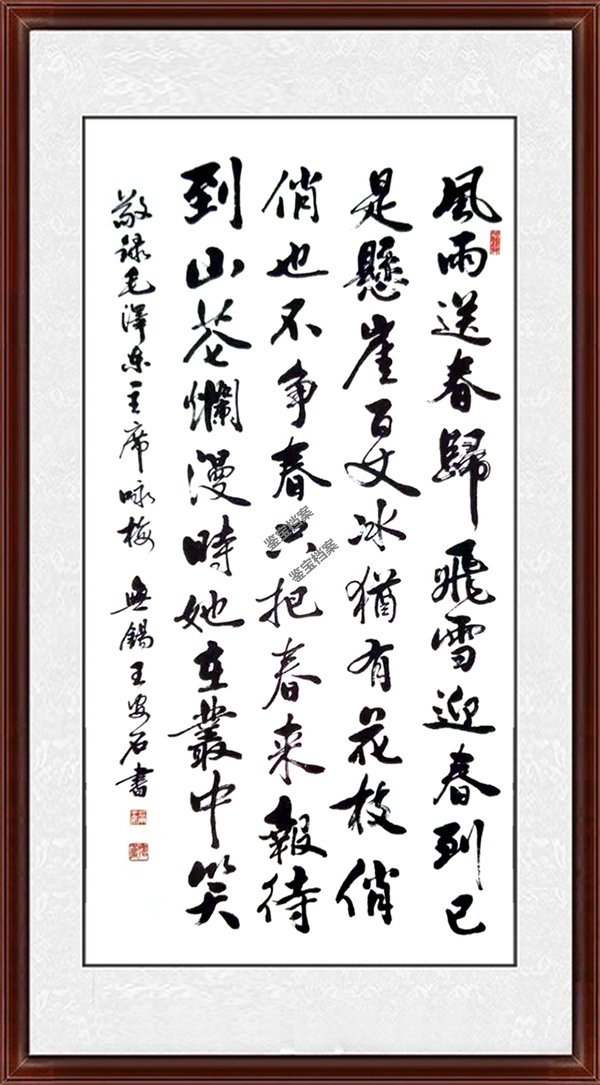 風雨送春歸飛雪迎春到已
是懸崖百丈冰猶有花枝俏
俏也不争春只把春来報待
到山花爛漫時她在叢中笑
敬録毛澤东主席咏梅 無錫王安石書
鉴宝档案
鉴宝档案